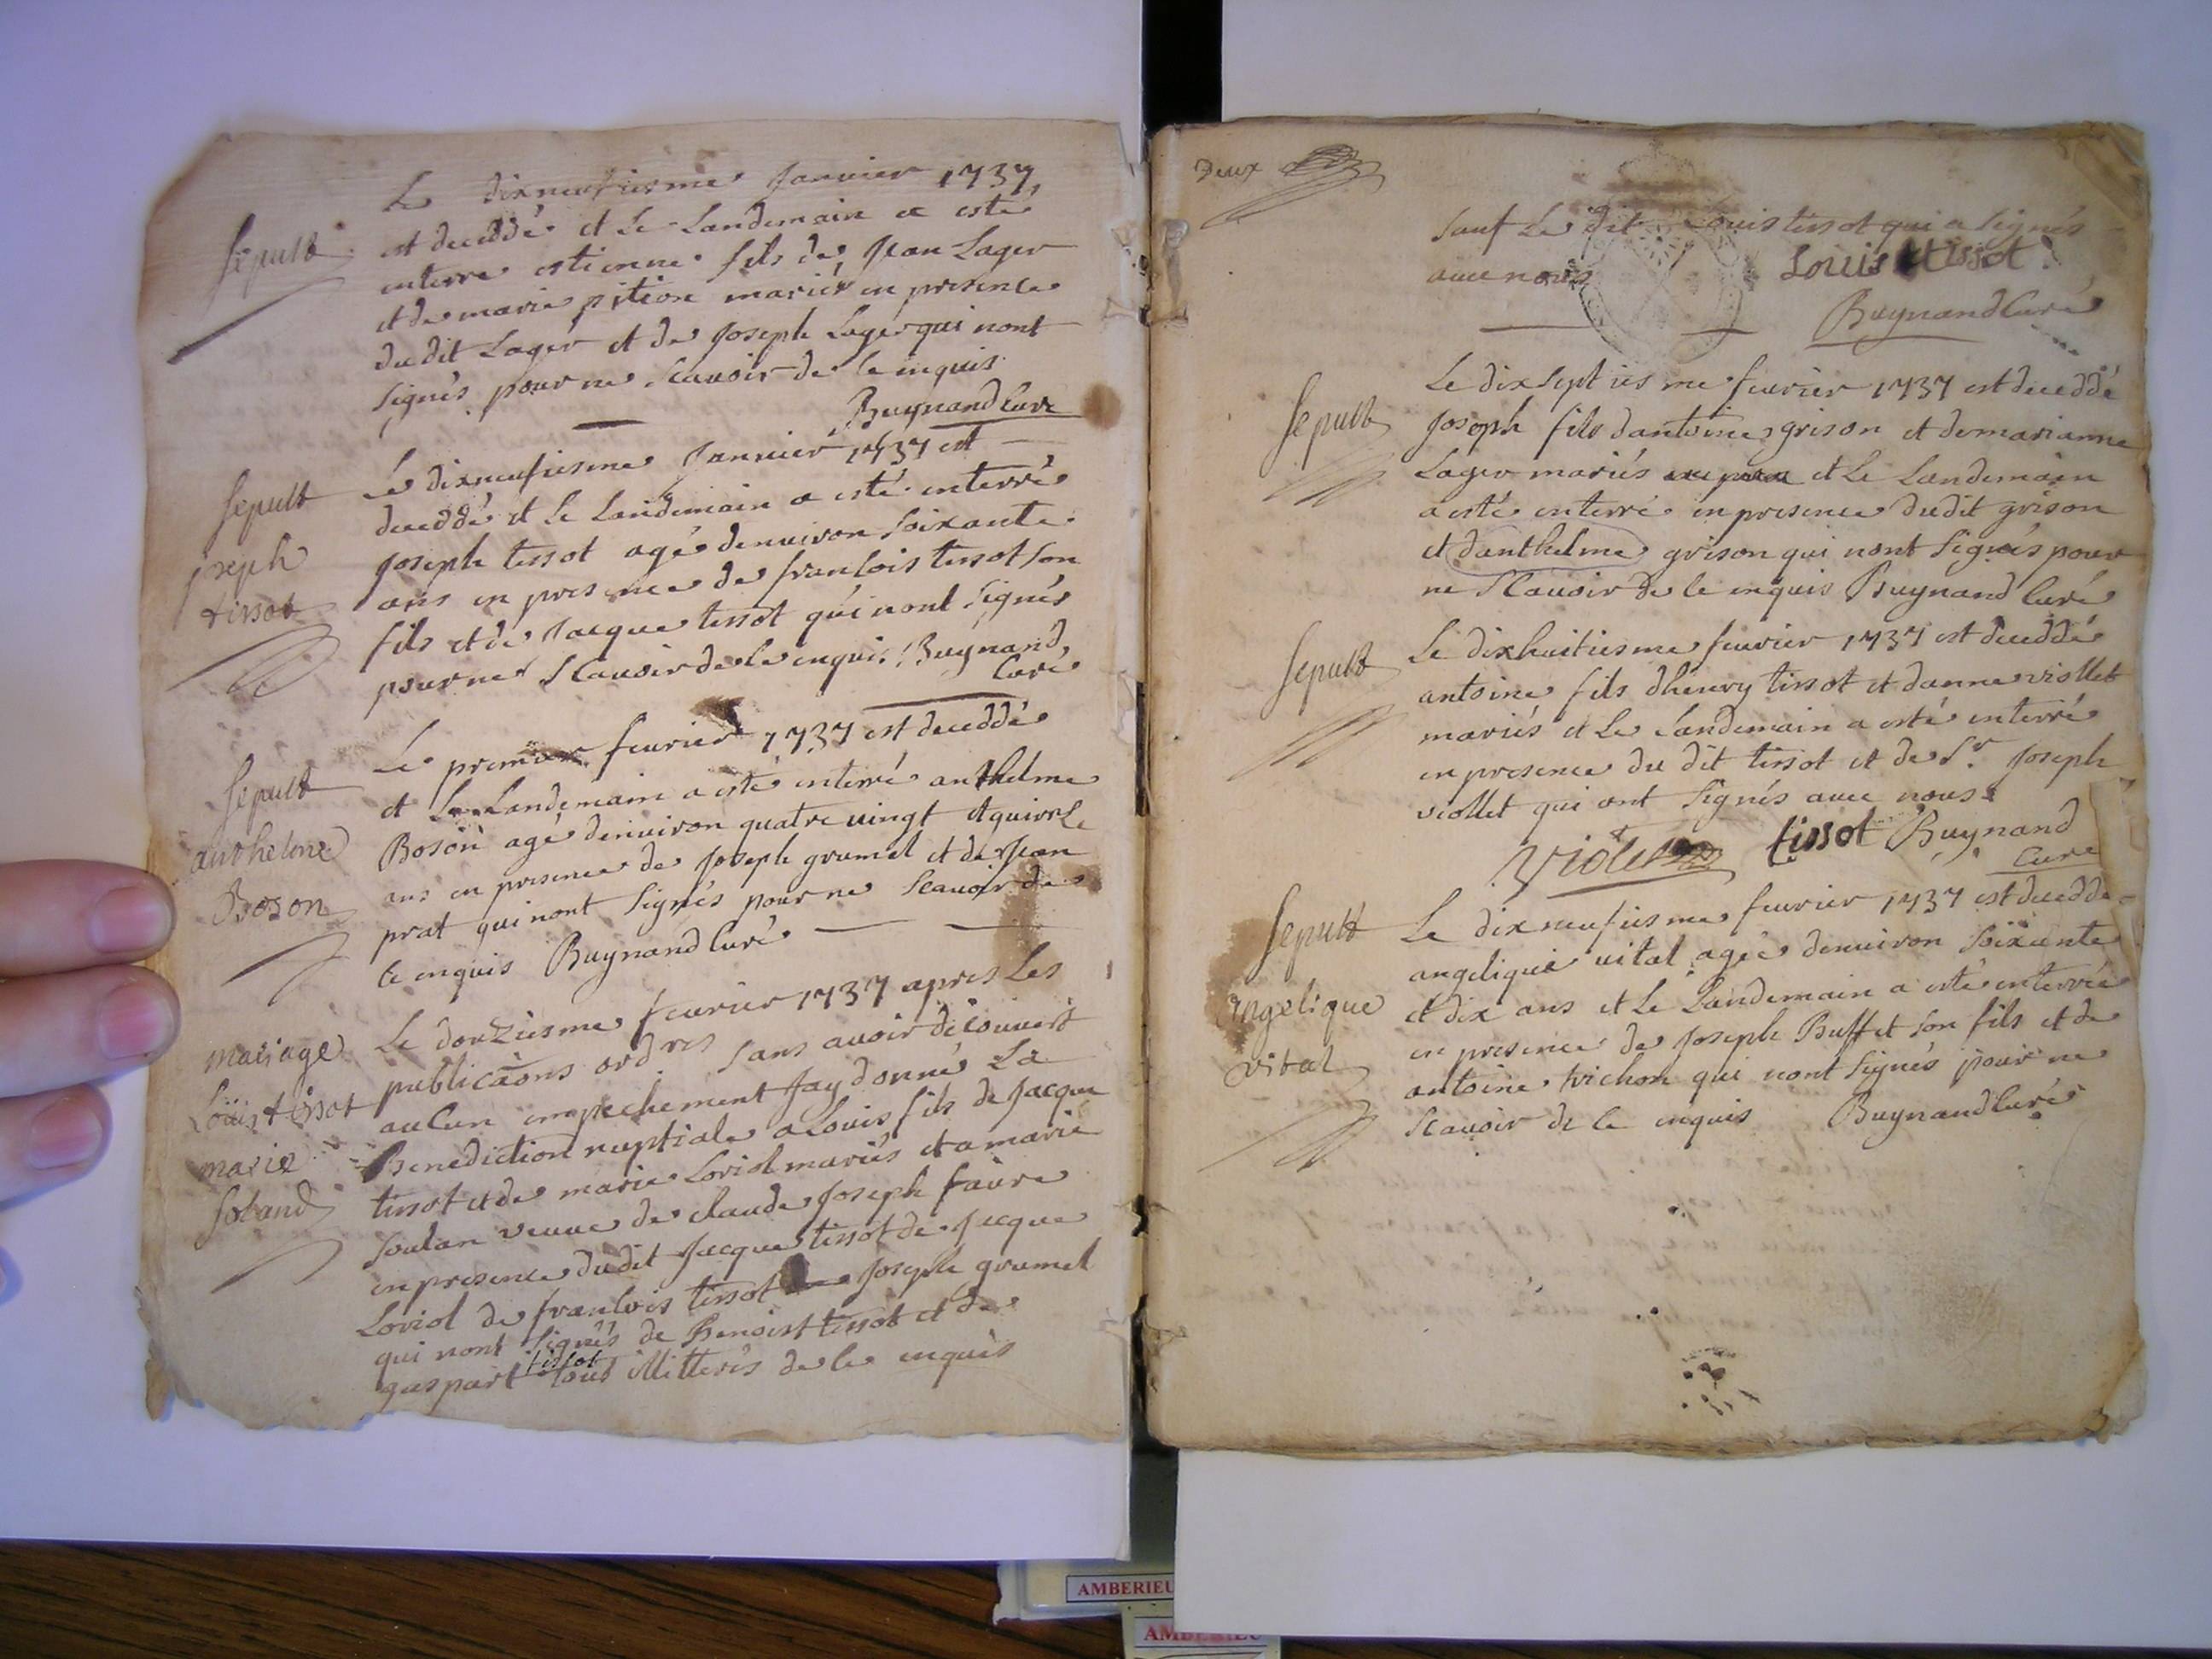 Le dixneufiesme Janvier 1737
Sepult
est deceddé et Le Landemain a esté
enterre estienne fils de Jean Lager
et de marie pition mariés en presence
dudit Lager et de Joseph Lager qui nont
signés pour ne scauoir de ce enquis
Buynand Curé
Sepult
Joseph
tissot
Le dixneufiesme Janvier 1737 est
deceddé et Le Landemain a esté enterré
Joseph tissot agé denuiron soixante
ans en presence de francois tissot son
fils et de Jacque tissot qui nont signés
pour ne scauoir de ce enquis Buynand
Curé
Sepult
anthelme
Boson
Le premier feurier 1737 est deceddé
et Le Landemain a esté enterré anthelme
Boson agé denuiron quatre uingt
ans en presence de Joseph grumel et de Jean
prat qui nont signés pour ne scauoir de
ce enquis Buynand Curé
mariage
Loüis tissot
marie
soland
Le douziesme feurier 1737 apres Les
publicãons ordres sans auoir découuert
aucun empechement Jay donné La
Benediction nuptiale a Louis fils de Jacque
tissot et de marie Loriol mariés et a marie
soulan veuue de claude Joseph faure
en presence dudit Jacque tissot de Jacque
Loriol de francois tissot Joseph grumel
qui nont signés de Benoist tissot et de
gaspart tissot tous illitterés de ce enquis
Deux
sauf Le dit Louis tissot qui a signés
auec nous Louis tissot
Buynand Curé
Sepult
Le dixseptiesme feurier 1737 est deceddé
Joseph fils dantoine grison et de marianne
Lager mariés et Le Landemain
a esté enterré en presence dudit grison
et danthelme grison qui nont signés pour
ne scauoir de ce enquis Buynand Curé
Sepult
Le dixhuitiesme feurier 1737 est deceddé
antoine fils dhenry tissot et danne viollet
mariés et Le Landemain a esté enterré
en presence du dit tissot et de Sr. Joseph
viollet qui ont signés auec nous
Violet tissot Buynand
Curé
Sepult
angelique
vital
Le dixneufiesme feurier 1737 est decedde
angelique uital agée denuiron soixante
et dix ans et Le Landemain a esté enterrée
en presence de Joseph Buffet son fils et de
antoine trichon qui nont signés pour ne
scauoir de ce enquis Buynand Curé
AMBERIEU
AMBERIEU